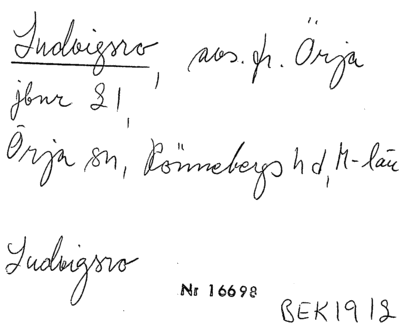 Ludvigsro, avs. fr. Örja
jbnr 21,
Örja sn, Rönnebergs hd, M-län
Ludvigsro
Nr 16698
BEK 1912